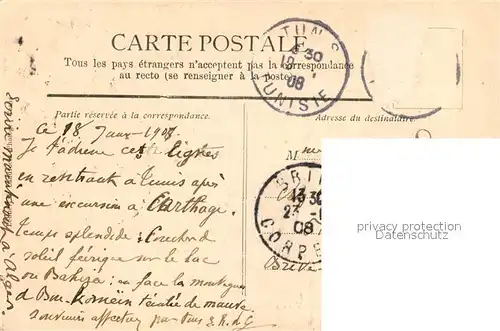 CARTE POSTALE
Tous les pays étrangers n'acceptent pas la correspondance
au recto (se renseigner à la poste)
TUNIS
30
08
TUNISIE
Partie réservée à la correspondance.
Adresse du destinataire.
Ce 18 Janv 1908
Je t'adresse ces lignes
en rentrant à Tunis après
une excursion à Carthage.
Temps splendide. Coucher de
soleil féerique sur le lac
ou Bahira: en face la montagne
de Bou-Korneïn teintée de mauve
Souvenirs affectueux
M
BRI
13 30
23
08
CORRE
Brive
à Alger
privacy protection
veikkos.com